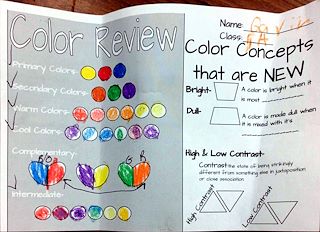 Color Review
Primary Colors-
Secondary Colors-
Warm Colors-
Cool Colors-
Complementary-
B O
G R
Intermediate-
Name:
Class:
Color Concepts
that are NEW
Bright- A color is bright when it
is most
Dull- A color is made dull when
it is mixed with it's
High & Low Contrast-
Contrast-the state of being strikingly
different from something else in juxtaposition
or close association
High Contrast
Low Contrast